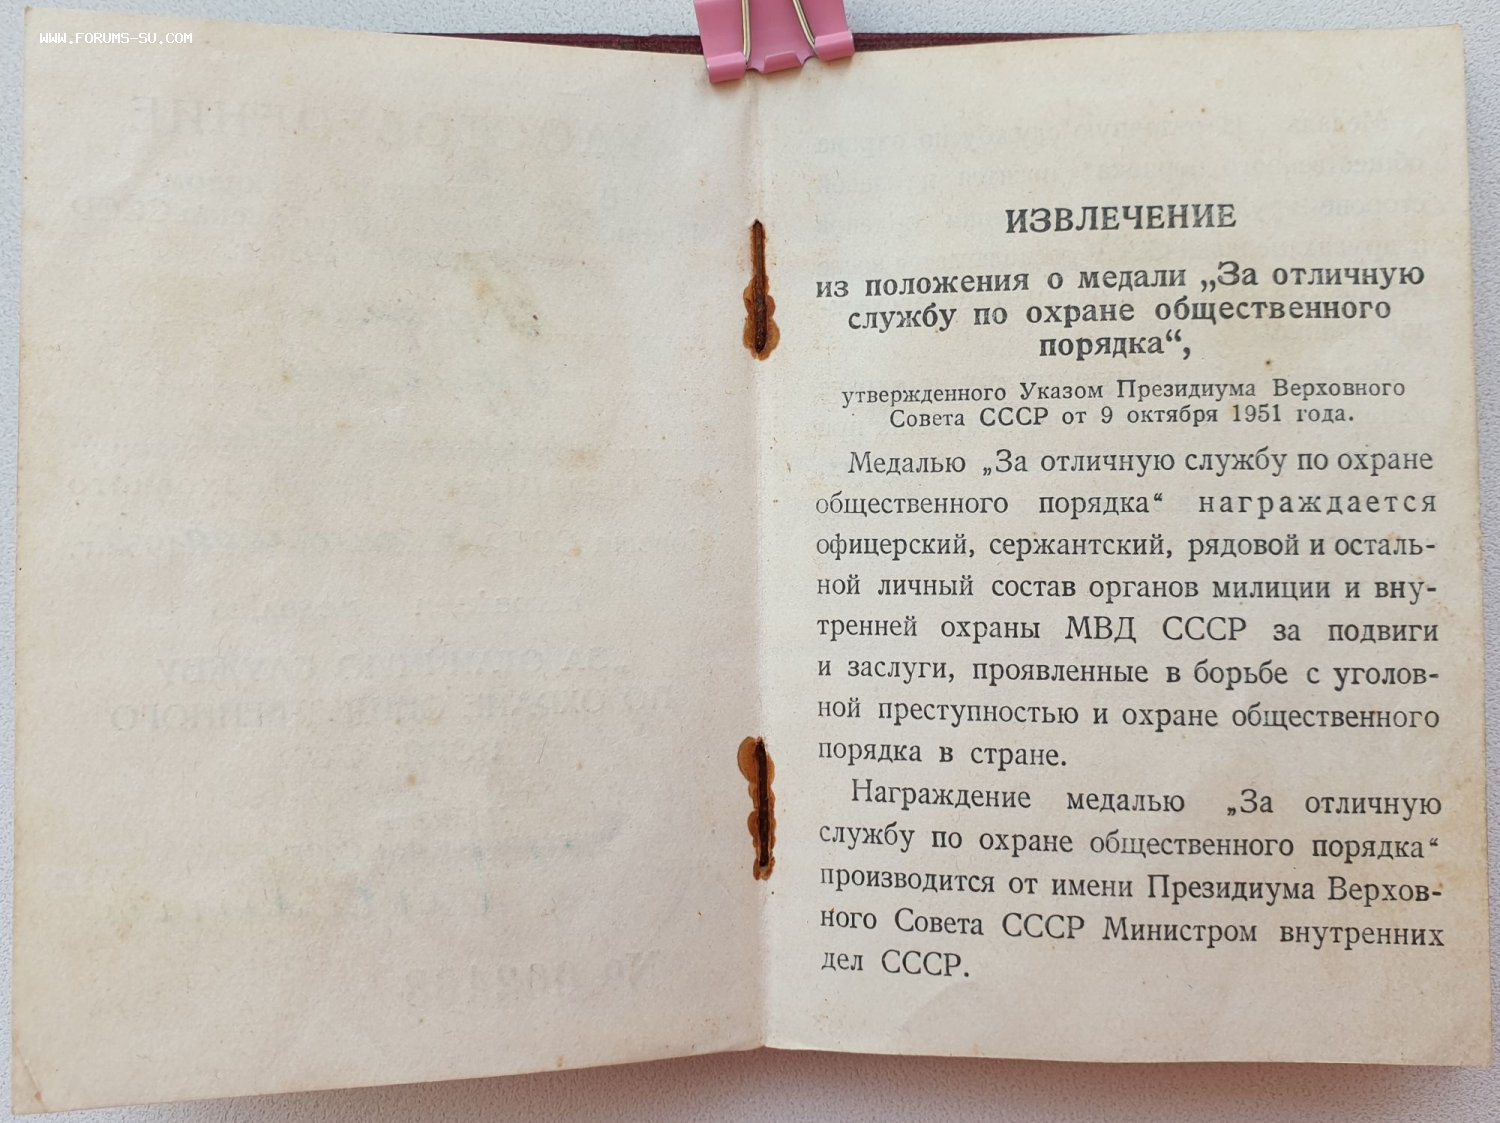 WWW.FORUMS-SU.COM
ИЗВЛЕЧЕНИЕ
из положения о медали „За отличную
службу по охране общественного
порядка“,
утвержденного Указом Президиума Верховного
Совета СССР от 9 октября 1951 года.
Медалью „За отличную службу по охране
общественного порядка“ награждается
офицерский, сержантский, рядовой и осталь-
ной личный состав органов милиции и вну-
тренней охраны МВД СССР за подвиги
и заслуги, проявленные в борьбе с уголов-
ной преступностью и охране общественного
порядка в стране.
Награждение медалью „За отличную
службу по охране общественного порядка“
производится от имени Президиума Верхов-
ного Совета СССР Министром внутренних
дел СССР.